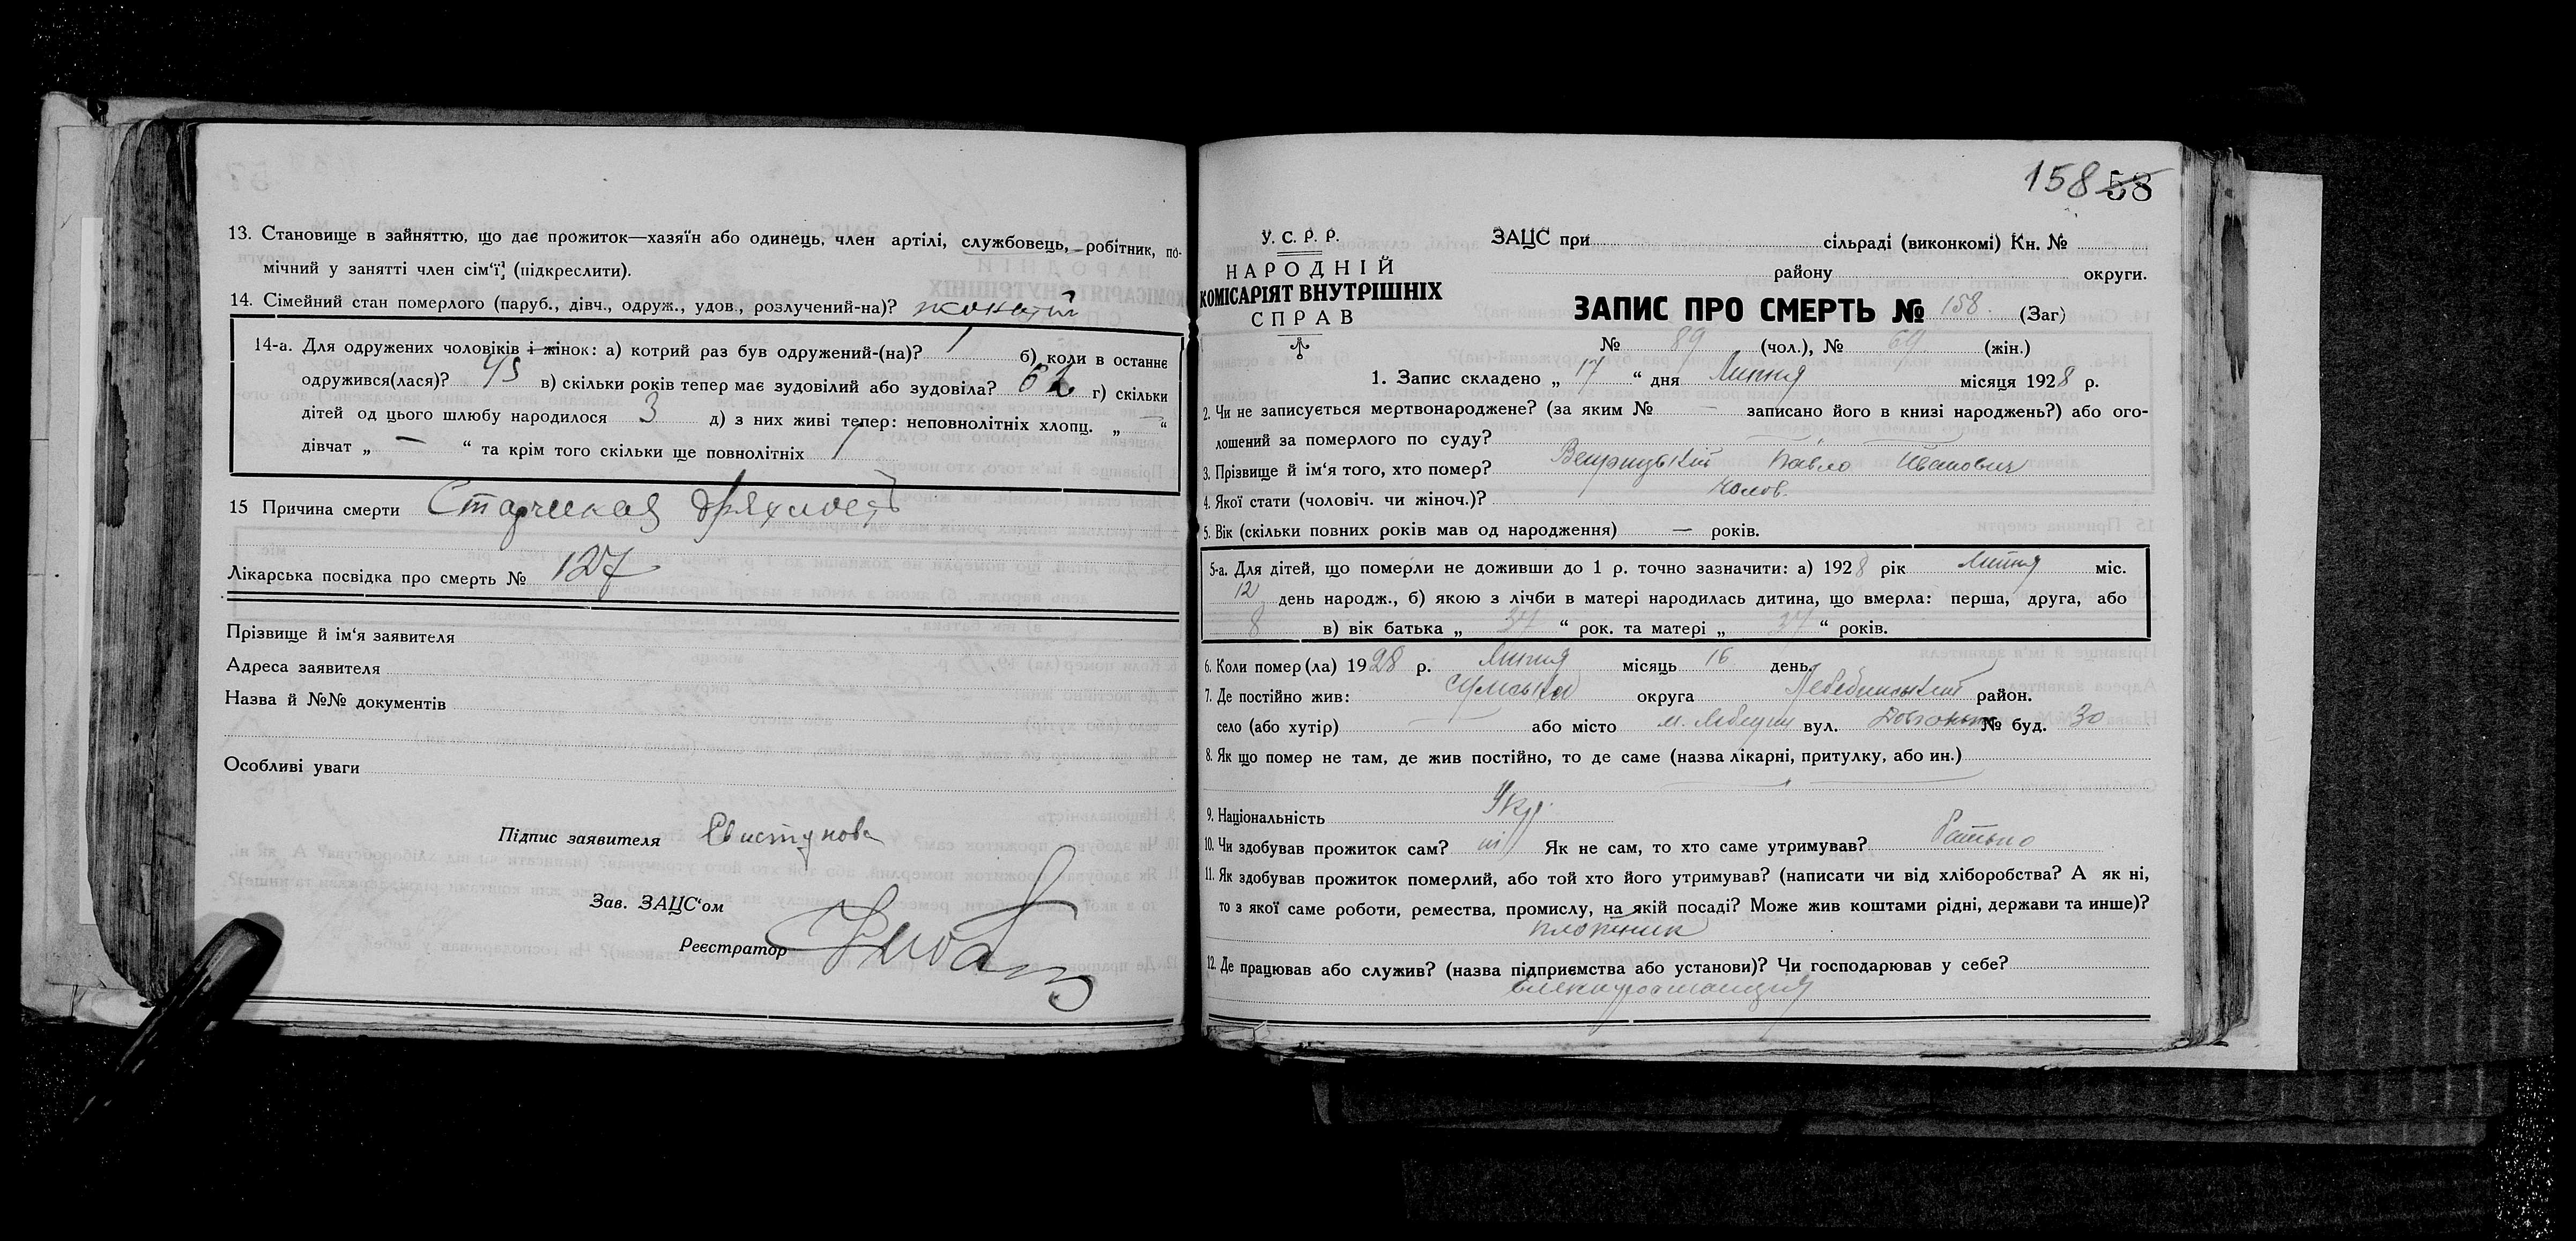 13. Становище в зайняттю, що дає прожиток—хазяїн або одинець, член артілі, службовець, робітник, по-
мічний у занятті член сім'ї, (підкреслити).
14. Сімейний стан померлого (паруб., дівч., одруж., удов., розлучений-на)? жонатій
14-а. Для одружених чоловіків і жінок: а) котрий раз був одружений-(на)? 1 б) коли в останнє
одружився(лася)? 45 в) скільки років тепер має зудовілий або зудовіла? 62 г) скільки
дітей од цього шлюбу народилося 3 д) з них живі тепер: неповнолітніх хлопц. „ — “
дівчат „ — “ та крім того скільки ще повнолітніх 1
15 Причина смерти Старческая дряхлость
Лікарська посвідка про смерть № 127
Прізвище й ім'я заявителя
Адреса заявителя
Назва й №№ документів
Особливі уваги
Підпис заявителя Свистунова
Зав. ЗАЦС'ом
Реєстратор
158 58
У. С. Р. Р.
НАРОДНІЙ
КОМІСАРІЯТ ВНУТРІШНІХ
СПРАВ
ЗАЦС при сільраді (виконкомі) Кн. №
району округи.
ЗАПИС ПРО СМЕРТЬ № 158. (Заг)
№ 89 (чол.), № 69 (жін.)
1. Запис складено „ 17 “ дня Липня місяця 1928 р.
2. Чи не записується мертвонароджене? (за яким № — записано його в книзі народжень?) або ого-
лошений за померлого по суду? —
3. Прізвище й ім'я того, хто помер? Павло Іванович
4. Якої стати (чоловіч. чи жіноч.)? Чолов.
5. Вік (скільки повних років мав од народження) — років.
5-а. Для дітей, що померли не доживши до 1 р. точно зазначити: а) 1928 рік Липня міс.
12 день народж., б) якою з лічби в матері народилась дитина, що вмерла: перша, друга, або
8 в) вік батька „ 37 “ рок. та матері „ 37 “ років.
6. Коли помер (ла) 1928 р. Липня місяць 16 день.
7. Де постійно жив: Сумська округа Лебединський район.
село (або хутір) — або місто м. Лебедин вул. № буд. 30
8. Як що помер не там, де жив постійно, то де саме (назва лікарні, притулку, або ин.) —
9. Національність Укр.
10. Чи здобував прожиток сам? ні Як не сам, то хто саме утримував? Батько
11. Як здобував прожиток померлий, або той хто його утримував? (написати чи від хліборобства? А як ні,
то з якої саме роботи, ремества, промислу, на якій посаді? Може жив коштами рідні, держави та инше)?
плотник
12. Де працював або служив? (назва підприємства або установи)? Чи господарював у себе?
електростанция